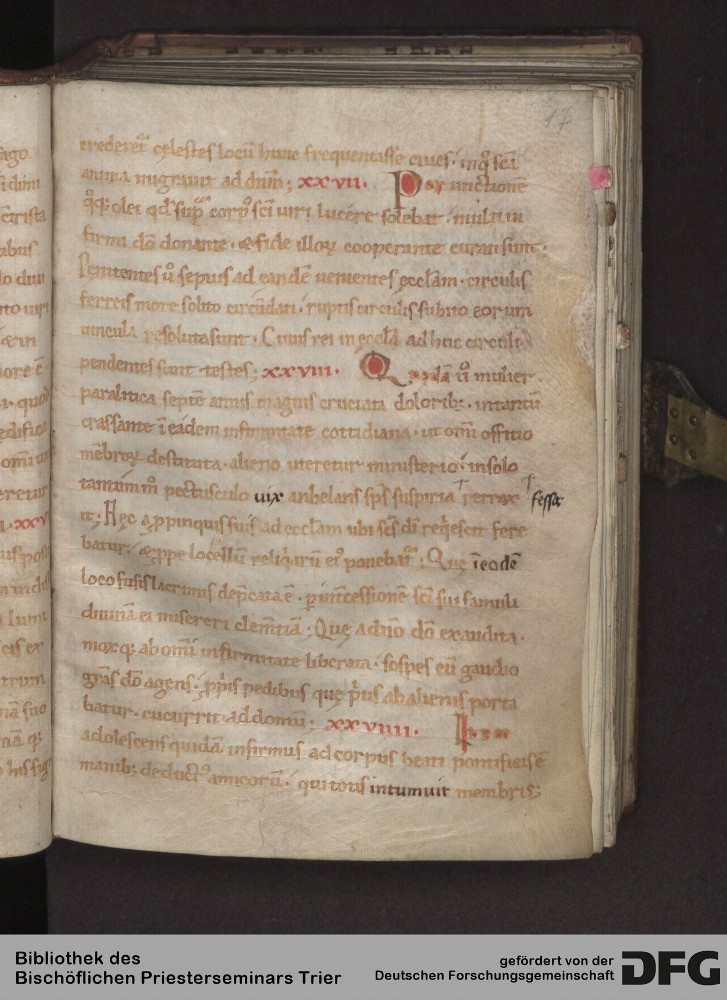 17
crederet̄ cęlestes locū hunc frequentasse ciues · in q̊ sc̄i
anima migrauit ad dn̄m ; xxvii. Per unctionē
q̊q; olei qd̄ sup̃ corp᷒ sc̄i uiri lucere solebat · multi in
firmi dō donante · & fide illoꝝ cooperante curati sunt ·
Penitentes ů sepius ad eandē uenientes ęcclam · circulis
ferreis more solito circūdati · ruptis circulis subito eorum
uincula resoluta sunt · Cuius rei in ęccla adhuc circuli
pendentes sunt testes ; xxviii. Quedā ů mulier
paralitica septē annis magnis cruciata dolorib; · intantū
crassante ī eadem infirmitate cottidiana · ut omī offitio
mēbroꝝ destituta · alieno uteretur ministerio · in solo
tantum m̊ pectusculo uix anhelans sps̄ suspiria retrax fessa
it ; Hęc a ꝓpinquis suis ad ecclam ubi scs̄ dī req̇escit fere
batur · & ꝓpe locellū reliq̇arū ei᷒ ponebat̃ ; Quę ī eodē
loco fusis lacrimis dep̄cata ē · ꝑ int̄cessionē sc̄i sui famuli
diuinā ei misereri clem̄tiā · Quę a dn̄o dō exaudita ·
moxq; ab omī infirmitate liberata · sospes cū gaudio
gr̄as dō agens · ꝓp̄is pedibus quę p̄us ab alienis porta
batur · cucurrit ad domū ; xxviiii. Item
adolescens quidā infirmus ad corpus beati pontificis ē
manib; deduct᷒ amicorū · qui totis intumuit membris ;
Bibliothek des
Bischöflichen Priesterseminars Trier
gefördert von der
Deutschen Forschungsgemeinschaft
DFG